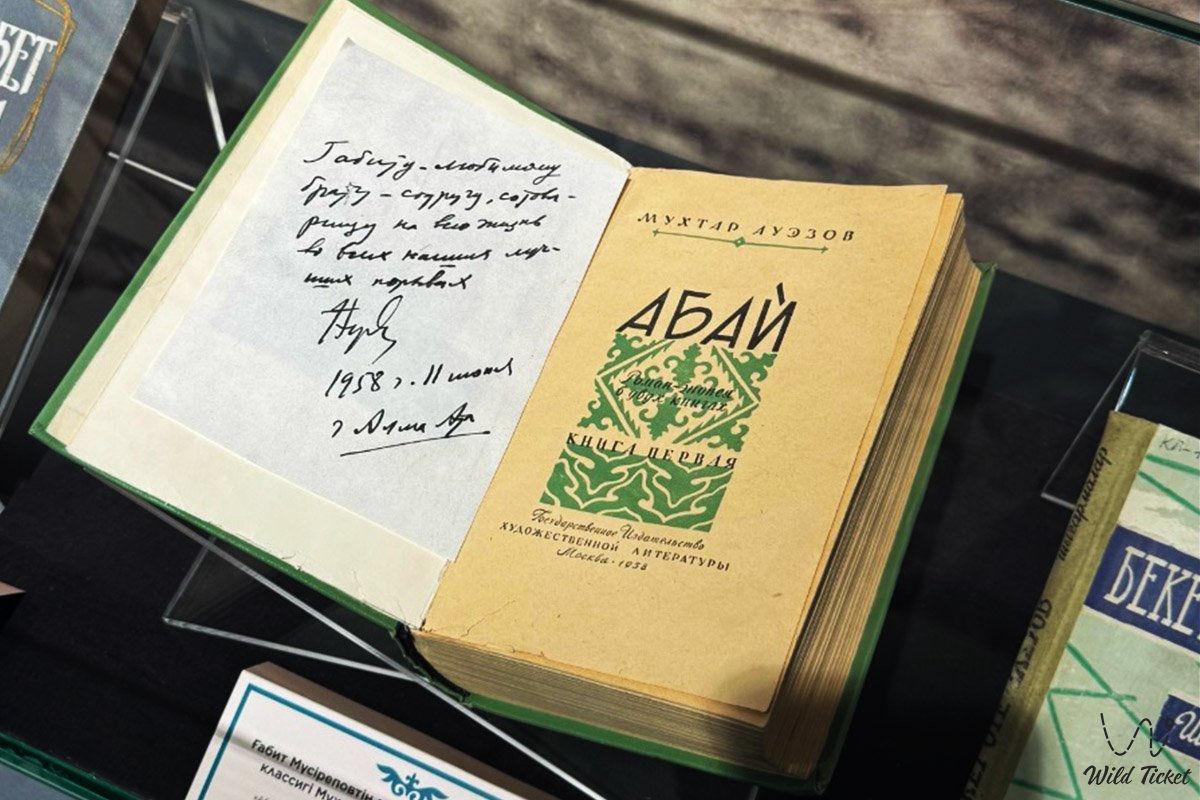 БЕТ
Габиту – любимому
брату – страу, сотова-
рищу на всю жизнь
во всех наших луч-
ших порывах
1958 г. 11 июня
г Алма Ата
МУХТАР АУЭЗОВ
АБАЙ
Роман-эпопея
в двух книгах
КНИГА ПЕРВАЯ
Государственное Издательство
ХУДОЖЕСТВЕННОЙ ЛИТЕРАТУРЫ
Москва · 1958
Ғабит Мүсіреповтің
классигі Мұх
шығармалар
БЕКЕ
Wild Ticket